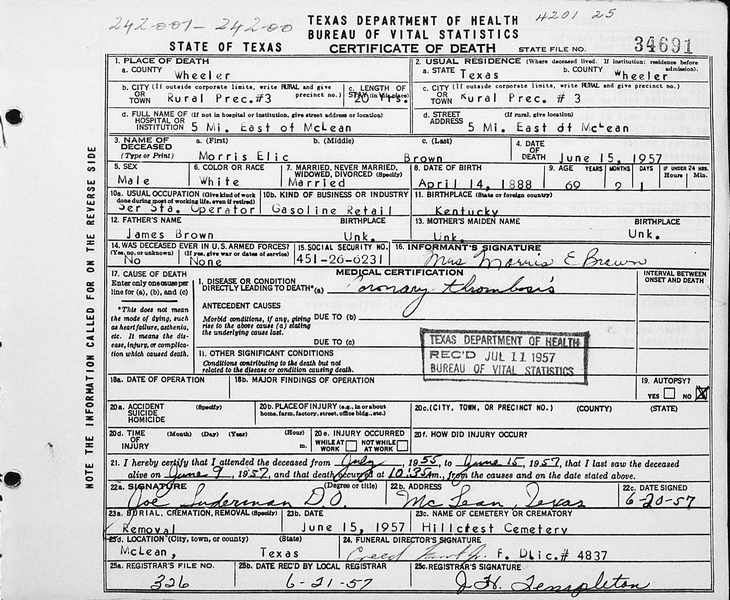 242-001-242-00
TEXAS DEPARTMENT OF HEALTH
4201 25
BUREAU OF VITAL STATISTICS
STATE OF TEXAS
CERTIFICATE OF DEATH
STATE FILE NO. 34691
NOTE THE INFORMATION CALLED FOR ON THE REVERSE SIDE
1. PLACE OF DEATH
a. COUNTY
Wheeler
2. USUAL RESIDENCE (Where deceased lived. If institution: residence before admission).
a. STATE
Texas
b. COUNTY
Wheeler
b. CITY (If outside corporate limits, write RURAL and give precinct no.)
OR
TOWN
Rural Prec.#3
c. LENGTH OF STAY
20 Yrs.
c. CITY (If outside corporate limits, write RURAL and give precinct no.)
OR
TOWN
Rural Prec. # 3
d. FULL NAME OF (If not in hospital or institution, give street address or location)
HOSPITAL OR
INSTITUTION
5 Mi. East of McLean
d. STREET ADDRESS
(If rural, give location)
5 Mi. East of McLean
3. NAME OF DECEASED
(Type or Print)
a. (First)
b. (Middle)
c. (Last)
Morris Elic Brown
4. DATE OF DEATH
June 15, 1957
5. SEX
Male
6. COLOR OR RACE
White
7. MARRIED, NEVER MARRIED, WIDOWED, DIVORCED (Specify)
Married
8. DATE OF BIRTH
April 14, 1888
9. AGE YEARS MONTHS DAYS IF UNDER 24 HRS. Hours Min.
69 2 1
10a. USUAL OCCUPATION (Give kind of work done during most of working life, even if retired)
Ser Sta. Operator
10b. KIND OF BUSINESS OR INDUSTRY
Gasoline Retail
11. BIRTHPLACE (State or foreign country)
Kentucky
12. FATHER'S NAME
BIRTHPLACE
James Brown
Unk.
13. MOTHER'S MAIDEN NAME
BIRTHPLACE
Unk.
Unk.
14. WAS DECEASED EVER IN U.S. ARMED FORCES?
(Yes, no, or unknown) (If yes, give war or dates of service)
No
None
15. SOCIAL SECURITY NO.
451-26-6231
16. INFORMANT'S SIGNATURE
Mrs Morris E. Brown
17. CAUSE OF DEATH
Enter only one cause per line for (a), (b), and (c)
*This does not mean the mode of dying, such as heart failure, asthenia, etc. It means the disease, injury, or complication which caused death.
MEDICAL CERTIFICATION
INTERVAL BETWEEN ONSET AND DEATH
I. DISEASE OR CONDITION
DIRECTLY LEADING TO DEATH*(a)
Coronary thrombosis
ANTECEDENT CAUSES
Morbid conditions, if any, giving rise to the above cause (a) stating the underlying cause last.
DUE TO (b)
DUE TO (c)
II. OTHER SIGNIFICANT CONDITIONS
Conditions contributing to the death but not related to the disease or condition causing death.
TEXAS DEPARTMENT OF HEALTH
REC'D JUL 11 1957
BUREAU OF VITAL STATISTICS
18a. DATE OF OPERATION
18b. MAJOR FINDINGS OF OPERATION
19. AUTOPSY?
YES NO X
20a. ACCIDENT (Specify)
SUICIDE
HOMICIDE
20b. PLACE OF INJURY (e.g., in or about home, farm, factory, street, office bldg., etc.)
20c. (CITY, TOWN, OR PRECINCT NO.) (COUNTY) (STATE)
20d. TIME OF INJURY (Month) (Day) (Year) (Hour) m.
20e. INJURY OCCURRED
WHILE AT WORK NOT WHILE AT WORK
20f. HOW DID INJURY OCCUR?
21. I hereby certify that I attended the deceased from July, 1955, to June 15, 1957, that I last saw the deceased
alive on June 9, 1957, and that death occurred at 10:35am., from the causes and on the date stated above.
22a. SIGNATURE (Degree or title)
Joe Suderman D.O.
22b. ADDRESS
McLean, Texas
22c. DATE SIGNED
6-20-57
23a. BURIAL, CREMATION, REMOVAL (Specify)
Removal
23b. DATE
June 15, 1957
23c. NAME OF CEMETERY OR CREMATORY
Hillcrest Cemetery
23d. LOCATION (City, town, or county) (State)
McLean, Texas
24. FUNERAL DIRECTOR'S SIGNATURE
F. DLic.# 4837
25a. REGISTRAR'S FILE NO.
326
25b. DATE REC'D BY LOCAL REGISTRAR
6-21-57
25c. REGISTRAR'S SIGNATURE
J. H. Templeton